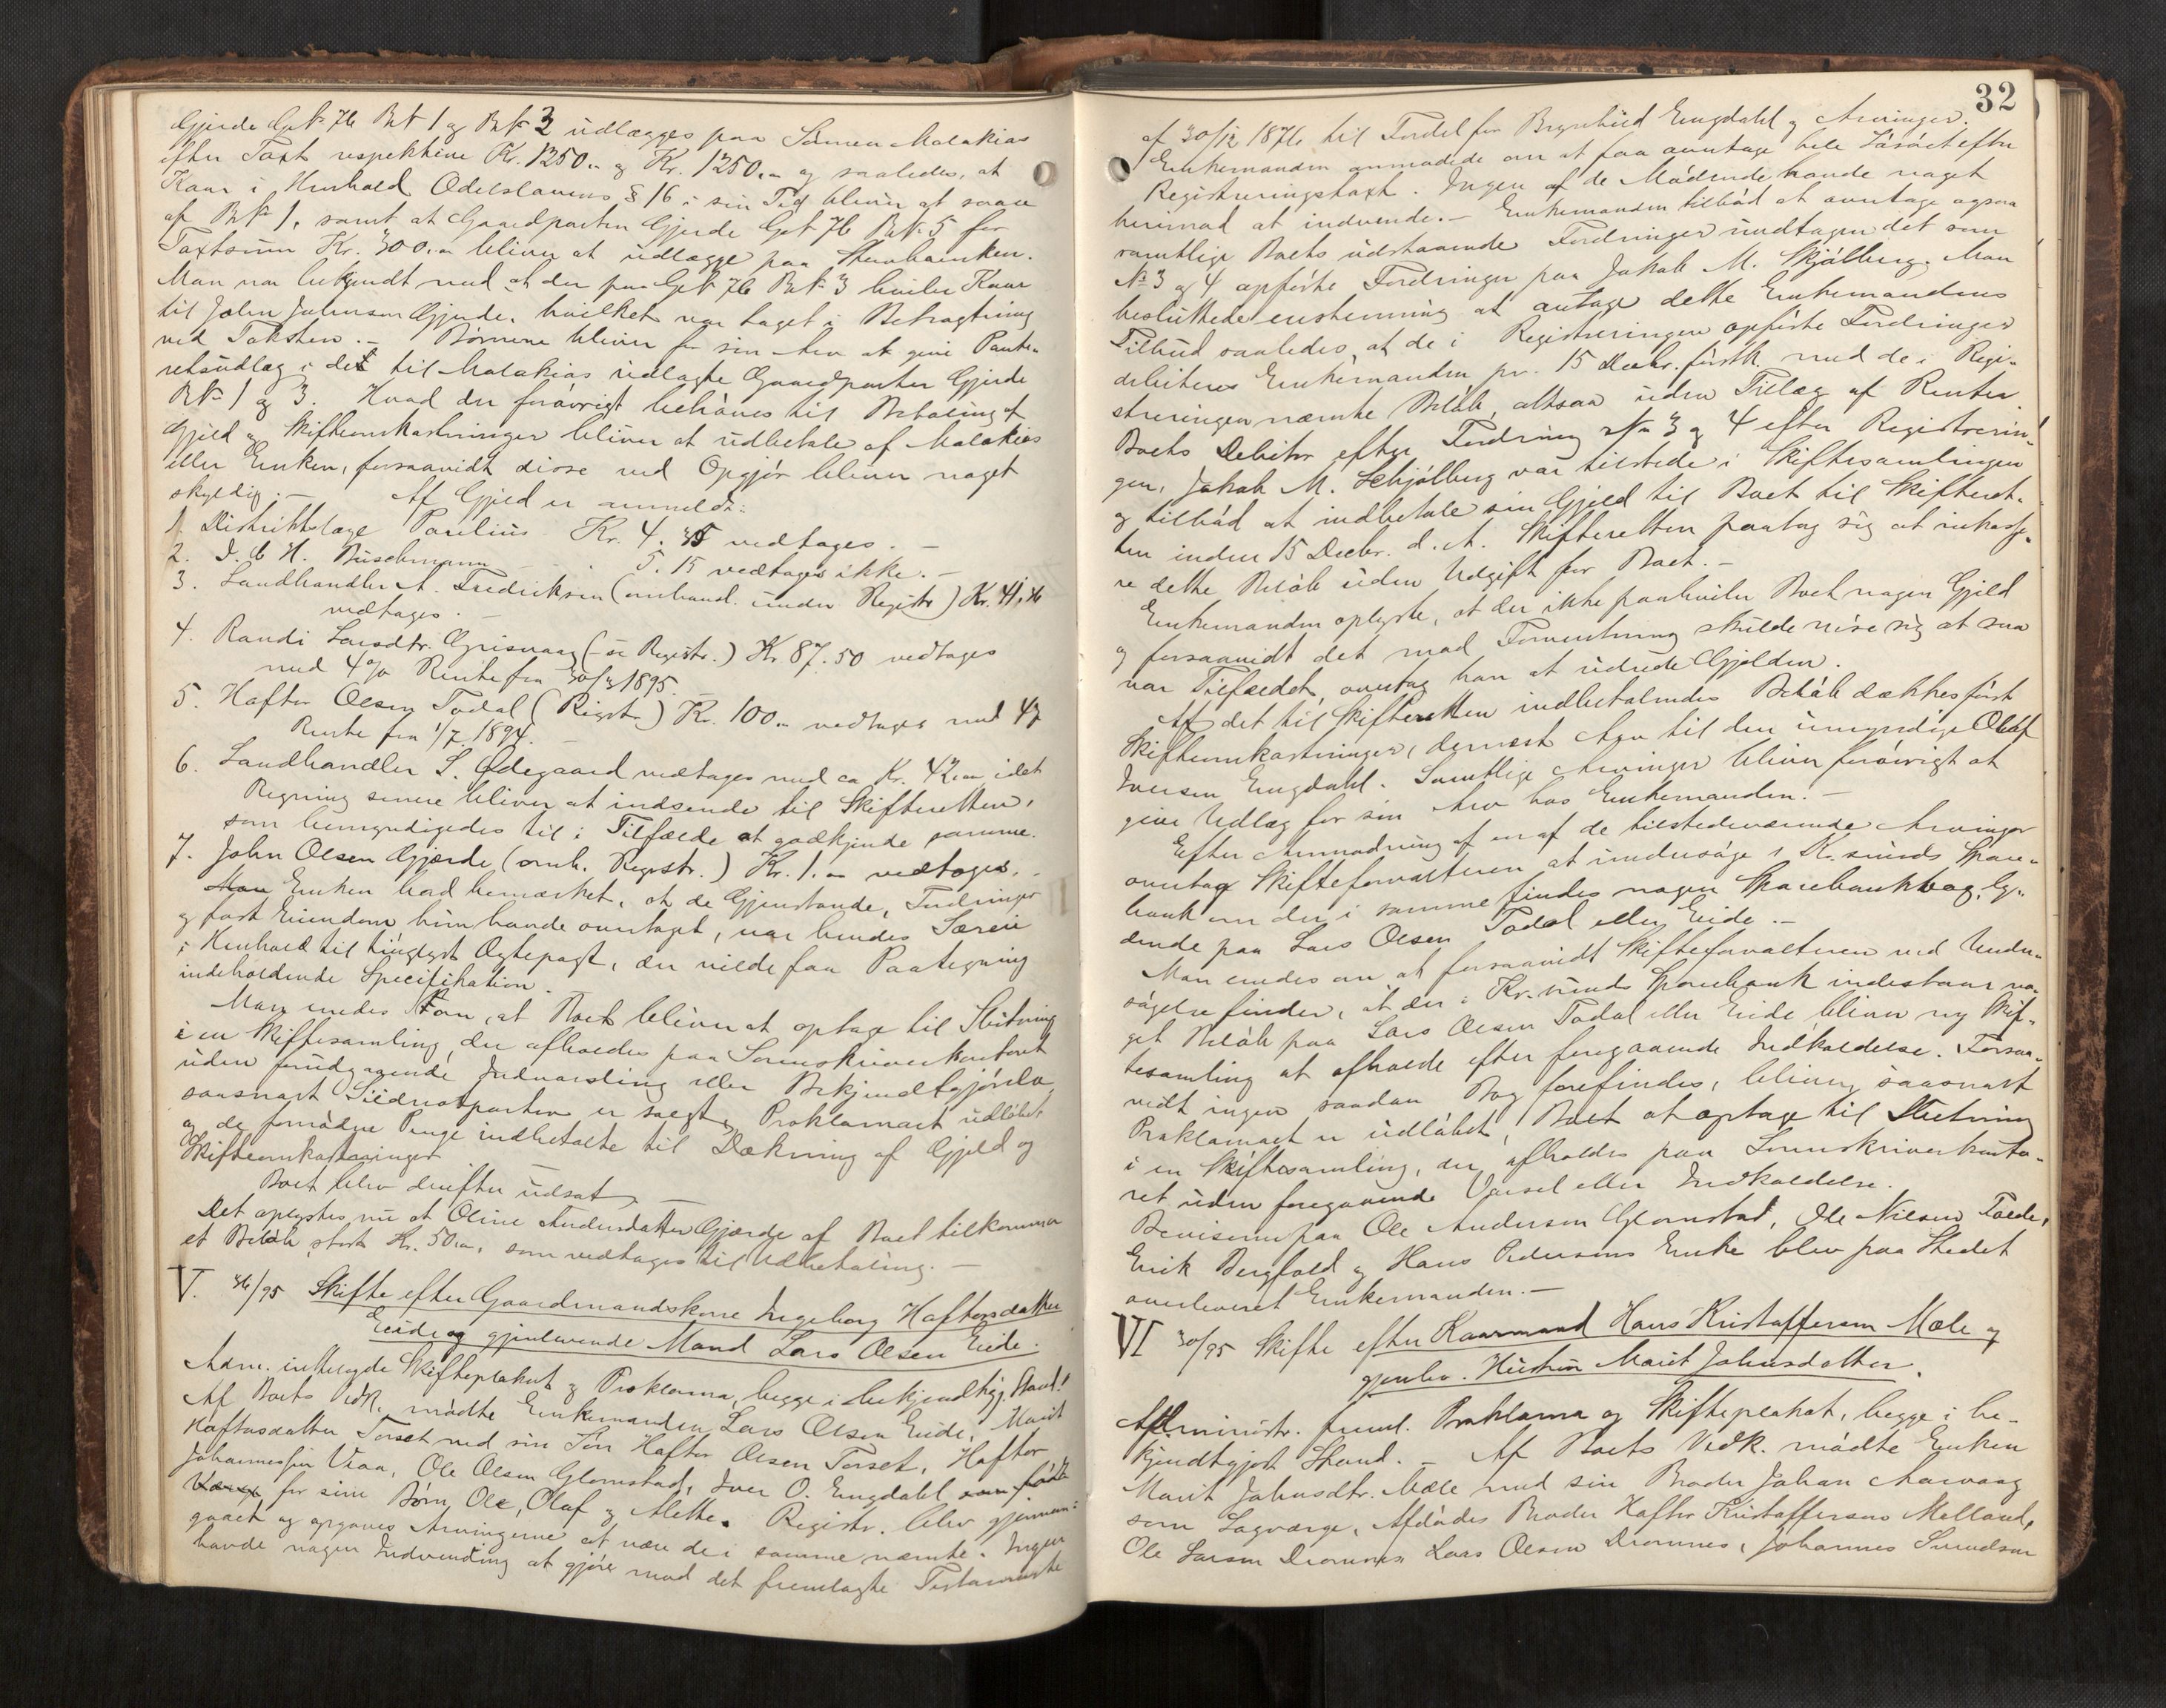 Gjerde Gn 76 Bn 1 og Bn 3 udlægges paa Sønnen Malakias
efter Taxt respektive Kr. 1250.- og Kr. 1250.- og saaledes, at
Kaar i Henhold Odelslovens § 16 i sin Tid bliver at svare
af Bn 1, samt at Gaardparten Gjerde Gn 76 Bn 5 for
Taxtsum Kr. 300.- bliver at udlægge paa Stervboenken.
Man var bekjendt med at der paa Gn 76 Bn 3 hviler Kaar
til John Johnsen Gjerde, hvilket var taget i Betragtning
ved Taksten.- Børnene bliver for sin Arv at give Pante-
retsudlæg i det til Malakias udlagte Gaardparter Gjerde
Bn 1 og 3. Hvad der forøvrigt behøves til Betaling af
Gjæld og Skifteomkostninger bliver at udbetale af Malakias
eller Enken, forsaavidt disse ved Opgjør bliver noget
skyldig.- Af Gjæld er anmeldt:
1. Distriktslæge Paulius Kr. 4.35 vedtages.-
2. J. C. H. Buschmann 5.15 vedtages ikke.-
3. Landhandler A. Fredriksen (omhandl. under Registr) Kr. 41,36
vedtages.
4. Randi Larsdtr. Grisvaag (se Registr.) Kr. 87.50 vedtages
med 4% Rente fra 30/3 1895.
5. Haftor Olsen Todal (Registr.) Kr. 100.- vedtages med 4%
Rente fra 1/7 1894.
6. Landhandler L. Ødegaard vedtages med ca Kr. 42.- idet
Regning senere bliver at indsende til Skifteretten,
som bemyndigedes til i Tilfælde at godkjende samme.
7. John Olsen Gjærde (omh. Regstr.) Kr. 1.- vedtages.-
Enken bad bemærket, at de Gjenstande, Fordringer
og fast Eiendom, hun havde overtaget, var hendes Særeie
i Henhold til tinglyst Ægtepagt, der vilde faa Paategning
indeholdende Specifikation.
Man enedes om, at Boet bliver at optage til Slutning
i en Skiftesamling, der afholdes paa Sorenskriverkontoret
uden forudgaaende Indvarsling eller Bekjendtgjørelse
saasnart Sildnotparten er solgt, Proklamaet udløbet
og de fornødne Penge indbetalte til Dækning af Gjæld og
Skifteomkostninger
Boet blev derefter udsat.-
Det oplystes nu at Oline Andersdatter Gjærde af Boet tilkommer
et Beløb, stort Kr. 50.-, som vedtages til Udbetaling.-
V. 36/95 Skifte efter Gaardmandskone Ingeborg Haftorsdatter
Eide og gjenlevende Mand Lars Olsen Eide.
Adm. irettelagde Skifteplakat og Proklama, begge i bekjendtgj. Stand!
Af Boets Vedk. mødte Enkemanden Lars Olsen Eide, Marit
Haftorsdatter Torset ved sin Søn Haftor Olsen Torset, Haftor
Johannessen Vaa, Ole Olsen Glomstad, Iver O. Engdahl som født
Værge for sine Børn, Ole, Olaf og Alette. Registr. blev gjennem-
gaaet og opgaves Arvingerne at være de i samme nævnte. Ingen
havde nogen Indvending at gjøre mod det fremlagte Testamente
32
af 30/12 1876 til Fordel for Brynhild Engdahl og Arvinger.
Enkemanden anmodede om at faa overtage hele Løsøret efter
Registreringstaxt. Ingen af de Mødende havde noget
herimod at indvende.- Enkemanden tilbød at overtage ogsaa
samtlige Boets udestaaende Fordringer undtagen det som
No 3 og 4 opførte Fordringer paa Jakob M. Skjølberg. Man
besluttede enstemmig at antage dette Enkemandens
Tilbud saaledes, at de i Registreringen opførte Fordringer
debiteres Enkemanden pr. 15 Decbr. førstk. med de i Regi-
streringen nævnte Beløb, altsaa uden Tillæg af Renter.
Boets Debitor efter Fordring No 3 og 4 efter Registrerin-
gen, Jakob M. Schjølberg var tilstede i Skiftesamlingen
og tilbød at indbetale sin Gjæld til Boet til Skifteret-
ten inden 15 Decbr. d. A. Skifteretten paatog sig at inkasse-
re dette Beløb uden Udgift for Boet.-
Enkemanden oplyste, at der ikke paahviler Boet nogen Gjæld
og forsaavidt det mod Formentning skulde vise sig at saa
var Tilfældet, overtog han at udrede Gjælden.
Af det til Skifteretten indbetalendes Beløb dækkes først
Skifteomkostninger, dernæst Arv til den umyndige Oluf
Iversen Engdahl. Samtlige Arvinger bliver forøvrigt at
give Udlæg for sin Arv hos Enkemanden.-
Efter Anmodning af en af de tilstedeværende Arvinger
overtog Skifteforvalteren at undersøge i Kr.sunds Spare-
bank om der i samme findes nogen Sparebankbog ly-
dende paa Lars Olsen Todal eller Eide.-
Man enedes om, at forsaavidt Skifteforvalteren ved Under-
søgelse finder, at der i Kr.sunds Sparebank indestaar no-
get Beløb paa Lars Olsen Todal eller Eide bliver ny Skif-
tesamling at afholde efter foregaaende Indkaldelse. Forsaa-
vidt ingen saadan Bog forefindes, bliver, saasnart
Proklamaet er udløbet, Boet at optage til Slutning
i en Skiftesamling, der afholdes paa Sorenskriverkonto-
ret uden foregaaende Varsel eller Indkaldelse.
Beviserne paa Ole Andersen Glomstad, Ole Nilsen Folde,
Erik Bergfald og Hans Pedersens Enke blev paa Stedet
overleveret Enkemanden.-
VI 30/95 Skifte efter Kaarmand Hans Kristoffersen Mæle og
gjenlev. Hustru Marit Johnsdatter.
Administr. freml. Proklama og Skifteplakat, begge i be-
kjendtgjort Stand.- Af Boets Vedk. mødte Enken
Marit Johnsdtr. Mæle med sin Broder Johan Aarvaag
som Lagværge, Afdødes Broder Haftor Kristoffersen Melland,
Ole Larsen Dromnes, Lars Olsen Dromnes, Johannes Svendsen